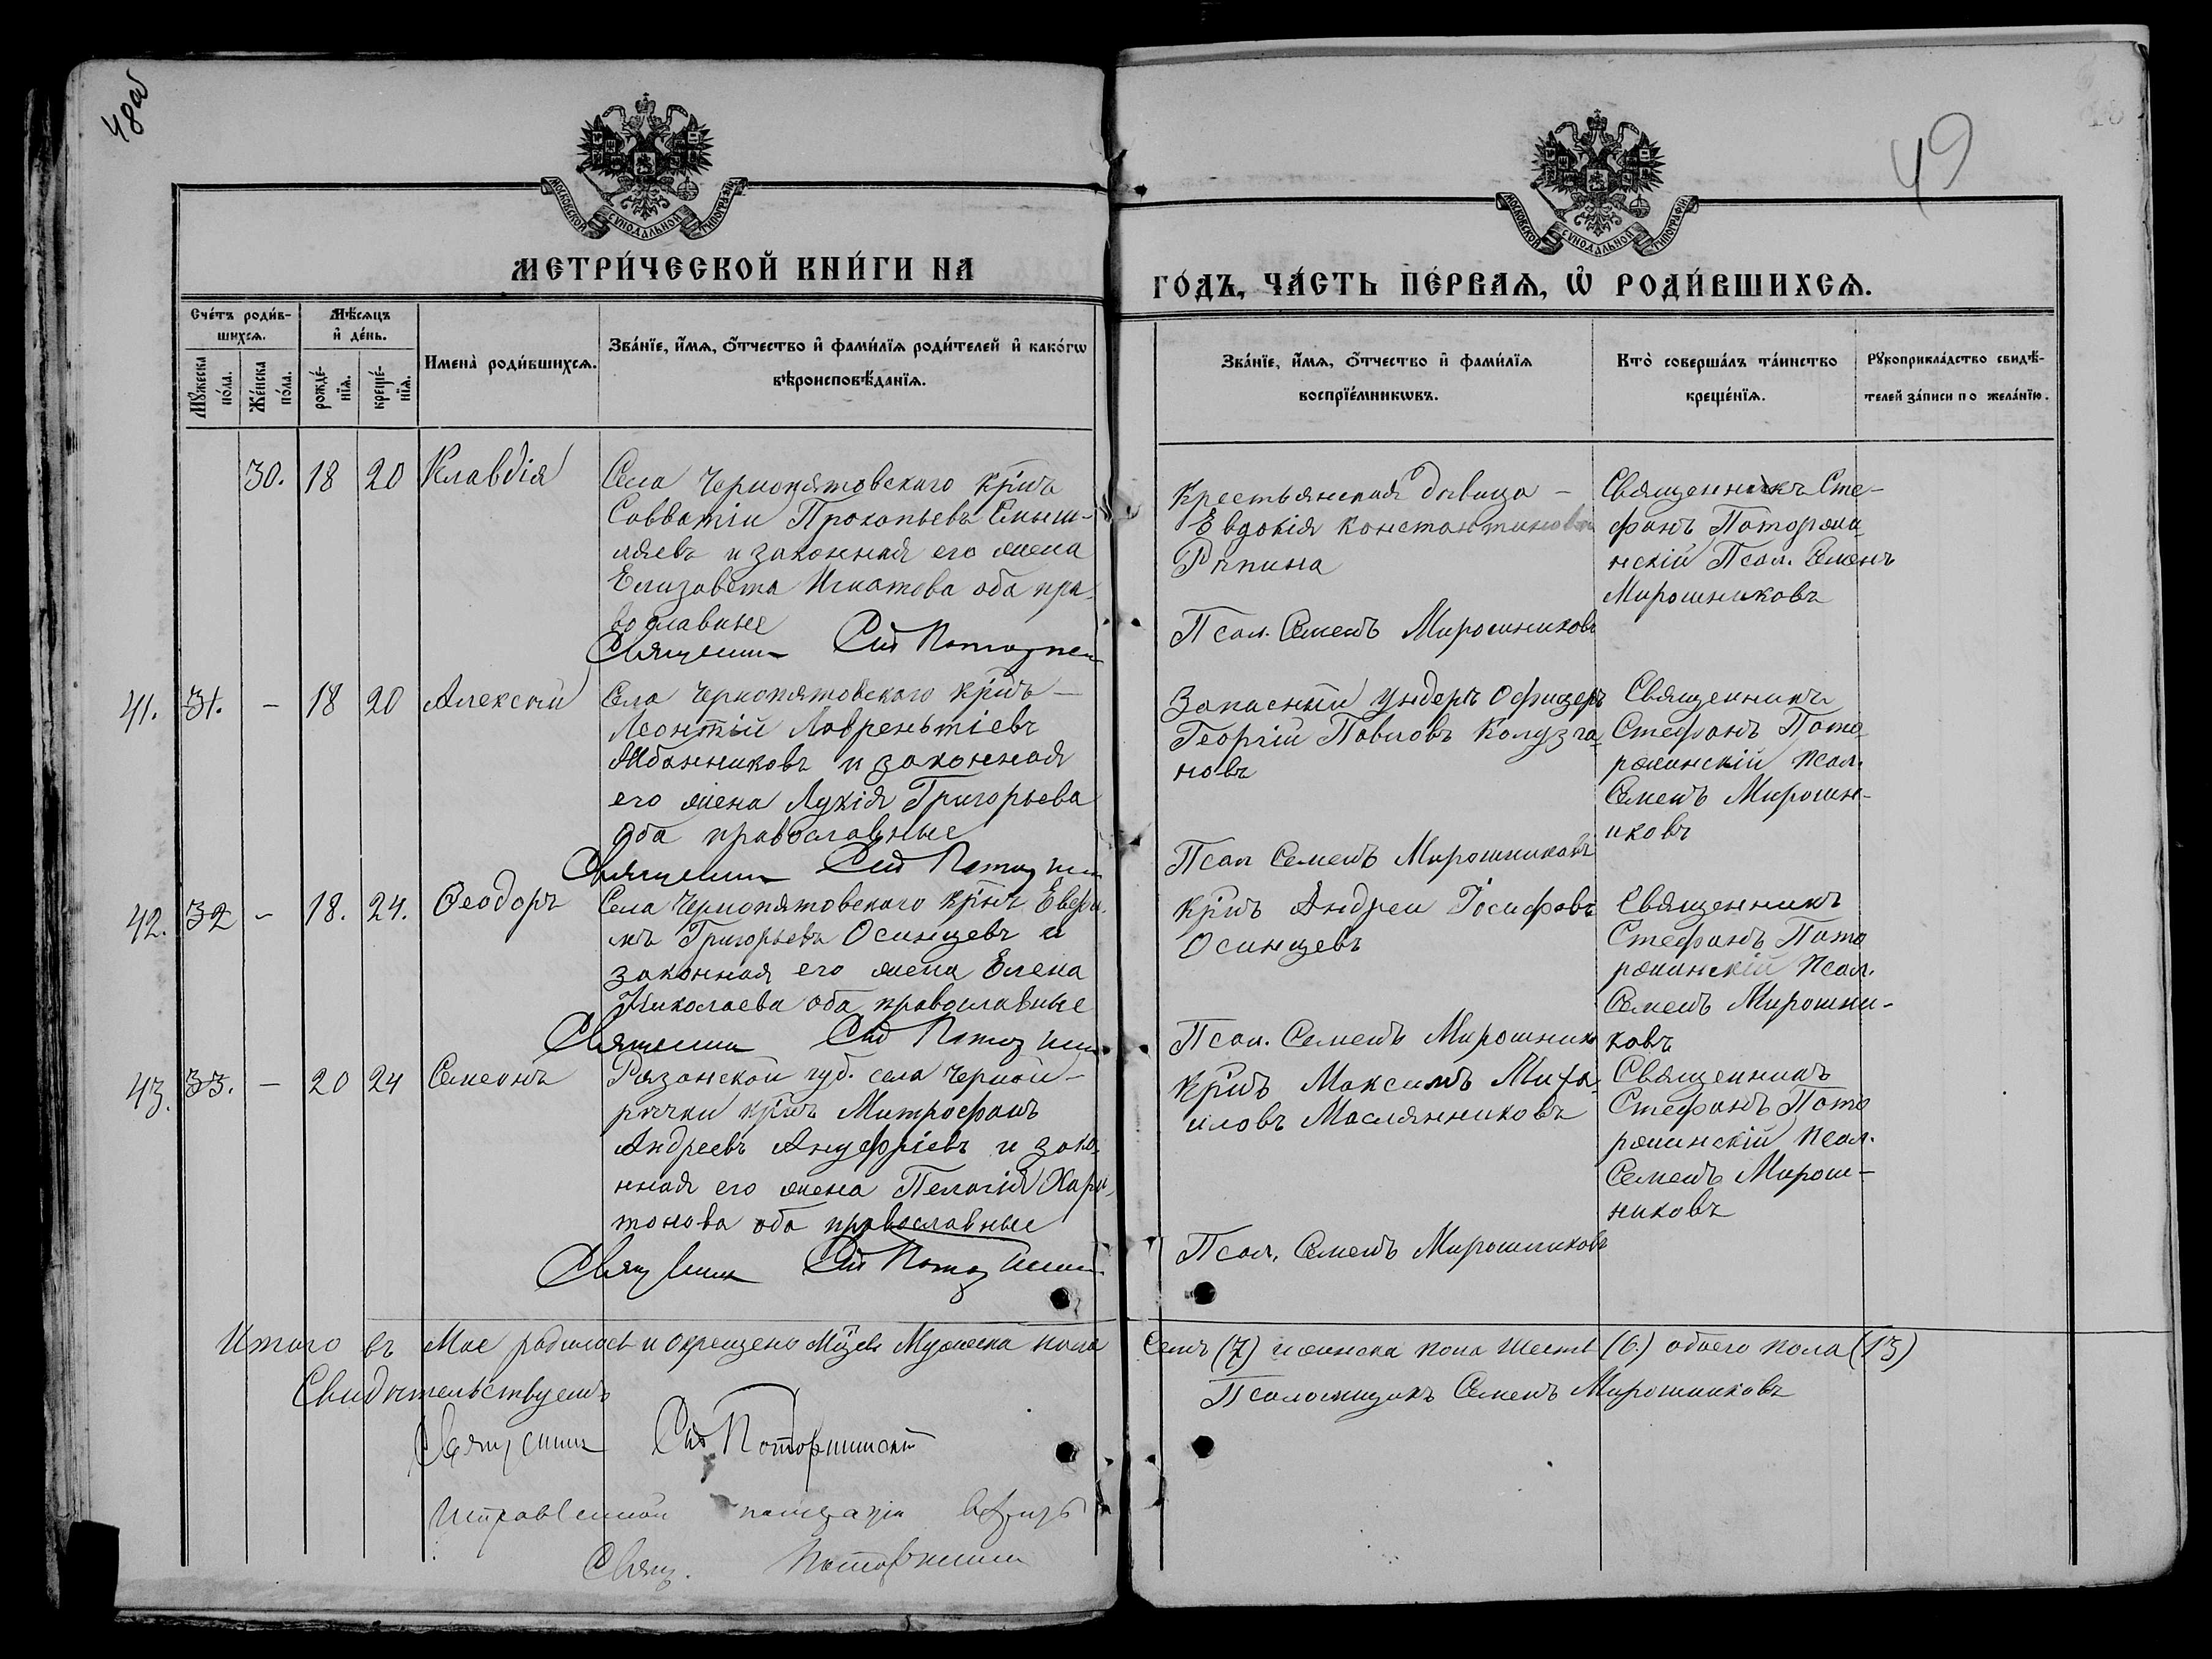 48об
49
МОСКОВСКОЙ СУНОДАЛЬНОЙ ТИПОГРАФІИ
МОСКОВСКОЙ СУНОДАЛЬНОЙ ТИПОГРАФІИ
МЕТРИ́ЧЕСКОЙ КНИ́ГИ НА
ГО́ДЪ, ЧА́СТЬ ПЕ́РВАѦ, Ѡ҆ РОДИ́ВШИХСѦ.
Сче́тъ роди́в-
шихсѧ.
Мꙋ́жеска
по́ла.
Же́нска
по́ла.
Мѣ́сѧцъ
и҆ де́нь.
рожде́-
нїѧ.
креще́-
нїѧ.
Имена̀ роди́вшихсѧ.
Зва́нїе, и҆́мѧ, ѻ҆́тчество и҆ фами́лїѧ роди́телей и҆ како́гѡ
вѣроисповѣ́данїѧ.
Зва́нїе, и҆́мѧ, ѻ҆́тчество и҆ фами́лїѧ
воспрїе́мникѡвъ.
Кто̀ соверша́лъ та́инство
креще́нїѧ.
Рꙋкоприкла́дство свидѣ́-
телей за́писи по жела́нїю.
30. 18 20 Клавдія
Села Чернопятовскаго кр͠нъ
Савватіи Прокопьевъ Смыш-
ляевъ и законная его жена
Елизавета Игнатова оба пра-
вославные
Священник
Крестьянская дѣвица -
Евдокія Константинова
Рѣпина
Псал. Семенъ Мирошниковъ
Священникъ Сте-
фанъ Поторжи
нскій Псал. Семенъ
Мирошниковъ
41. 31. - 18 20 Алексѣй
Села Чернопятовского кр͠нъ -
Леонтій Лаврентіевъ
и законная
его жена Лукія Григорьева
оба православные
Священник
Запасный ундеръ офицеръ
Георгій Павловъ
новъ
Псал Семенъ Мирошниковъ
Священникъ
Стефанъ Пото
ржинскій Псал.
Семенъ Мирошн-
иковъ
42. 32 - 18. 24. Ѳеодоръ
Села Чернопятовского кр͠нъ Евфи-
мъ Григорьевъ Осинцевъ и
законная его жена Елена
Николаева оба православные
Священник
кр͠нъ Андреи Іосифовъ
Осинцевъ
Псал. Семенъ Мирошник
Священникъ
Стефанъ Пото
ржинскій Псал.
Семенъ Мирошни-
ковъ
43. 33. - 20 24 Семеонъ
Рязанской губ. села Черной-
рѣчки кр͠нъ Митрофанъ
Андреевъ Ануфріевъ и зако-
нная его жена Пелагія Хари-
тонова оба православные
Священник
кр͠нъ Максимъ Миха-
иловъ Маслянниковъ
Псал. Семенъ Мирошниковъ
Священникъ
Стефанъ Пото
ржинскій Псал.
Семенъ Мирош-
никовъ
Итого въ Мае родилось и окрещено Мужеска пола
Семь (7) женска пола шесть (6.) обоего пола (13)
Свидѣтельствуемъ
Псаломщикъ Семенъ Мирошниковъ
Священник Поторжинскій
Исправленной
Свящ. Поторжинск